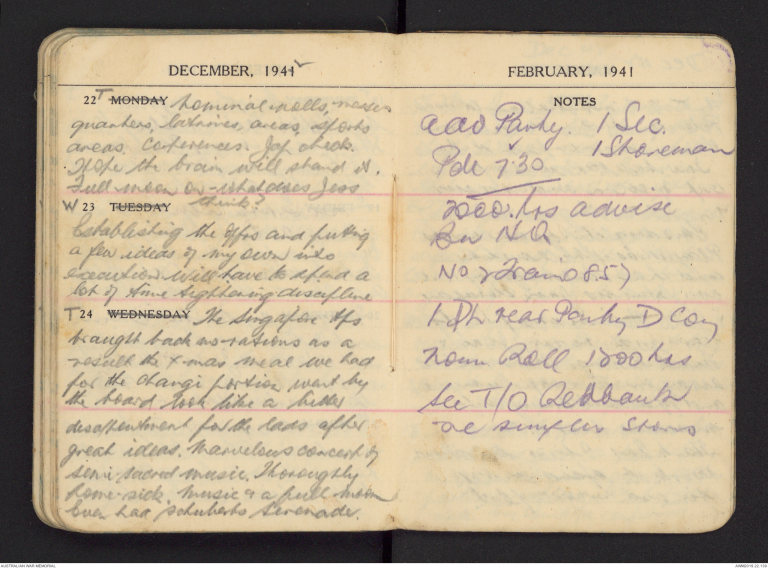 DECEMBER, 1941
22 T MONDAY Nominal rolls, messes
quarters, latrines, areas, sports
areas. Conferences. Jap check.
Hope the brain will stand it.
Full moon on - what does Jess
think?
W 23 TUESDAY
Establishing the offrs and putting
a few ideas of my own into
execution. Will have to spend a
lot of time tightening discipline
T 24 WEDNESDAY The Singapore
brought back no rations as a
result the X-mas meal we had
for the Changi portion went by
the board look like a bitter
disappointment for the lads after
great ideas. Marvelous concert of
semi-sacred music. Thoroughly
home-sick. Music & a full moon
Even had Schuberts Serenade.
FEBRUARY, 1941
NOTES
Party. 1 Sec.
1 Storeman
Pde 7.30
2000 hrs advise
Bn HQ
No
rear Party D Coy
Nom Roll 1200 hrs
See T/O Redbank
re surplus Stores
AUSTRALIAN WAR MEMORIAL